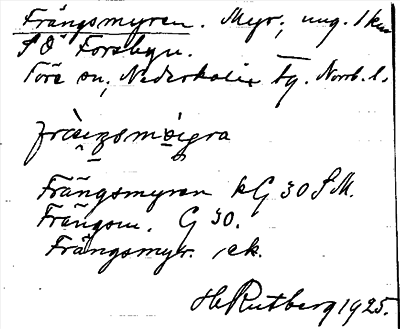 Frängsmyren. Myr, ung. 1 km
SO Forsbyn.
Töre sn, Nederkalix tg. Norrb. l.
Frängsmyren kG 30 S M.
Frängsm. G 30.
Frängsmyr. ek.
H Rutberg 1925.